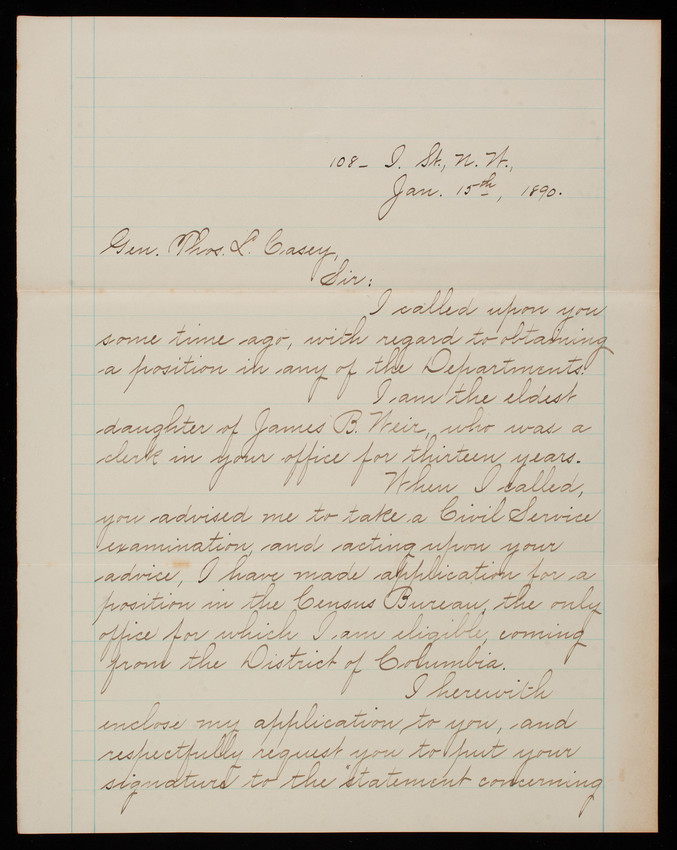 108- I. St., N.W.,
Jan. 15th, 1890.
Gen. Thos. L. Casey,
Sir:
I called upon you
some time ago, with regard to obtaining
a position in any of the Departments.
I am the eldest
daughter of James B. Weir, who was a
clerk in your office for thirteen years.
When I called,
you advised me to take a Civil Service
examination, and acting upon your
advice, I have made application for a
position in the Census Bureau, the only
office for which I am eligible, coming
from the District of Columbia.
I herewith
enclose my application to you, and
respectfully request you to put your
signature to the "statement concerning